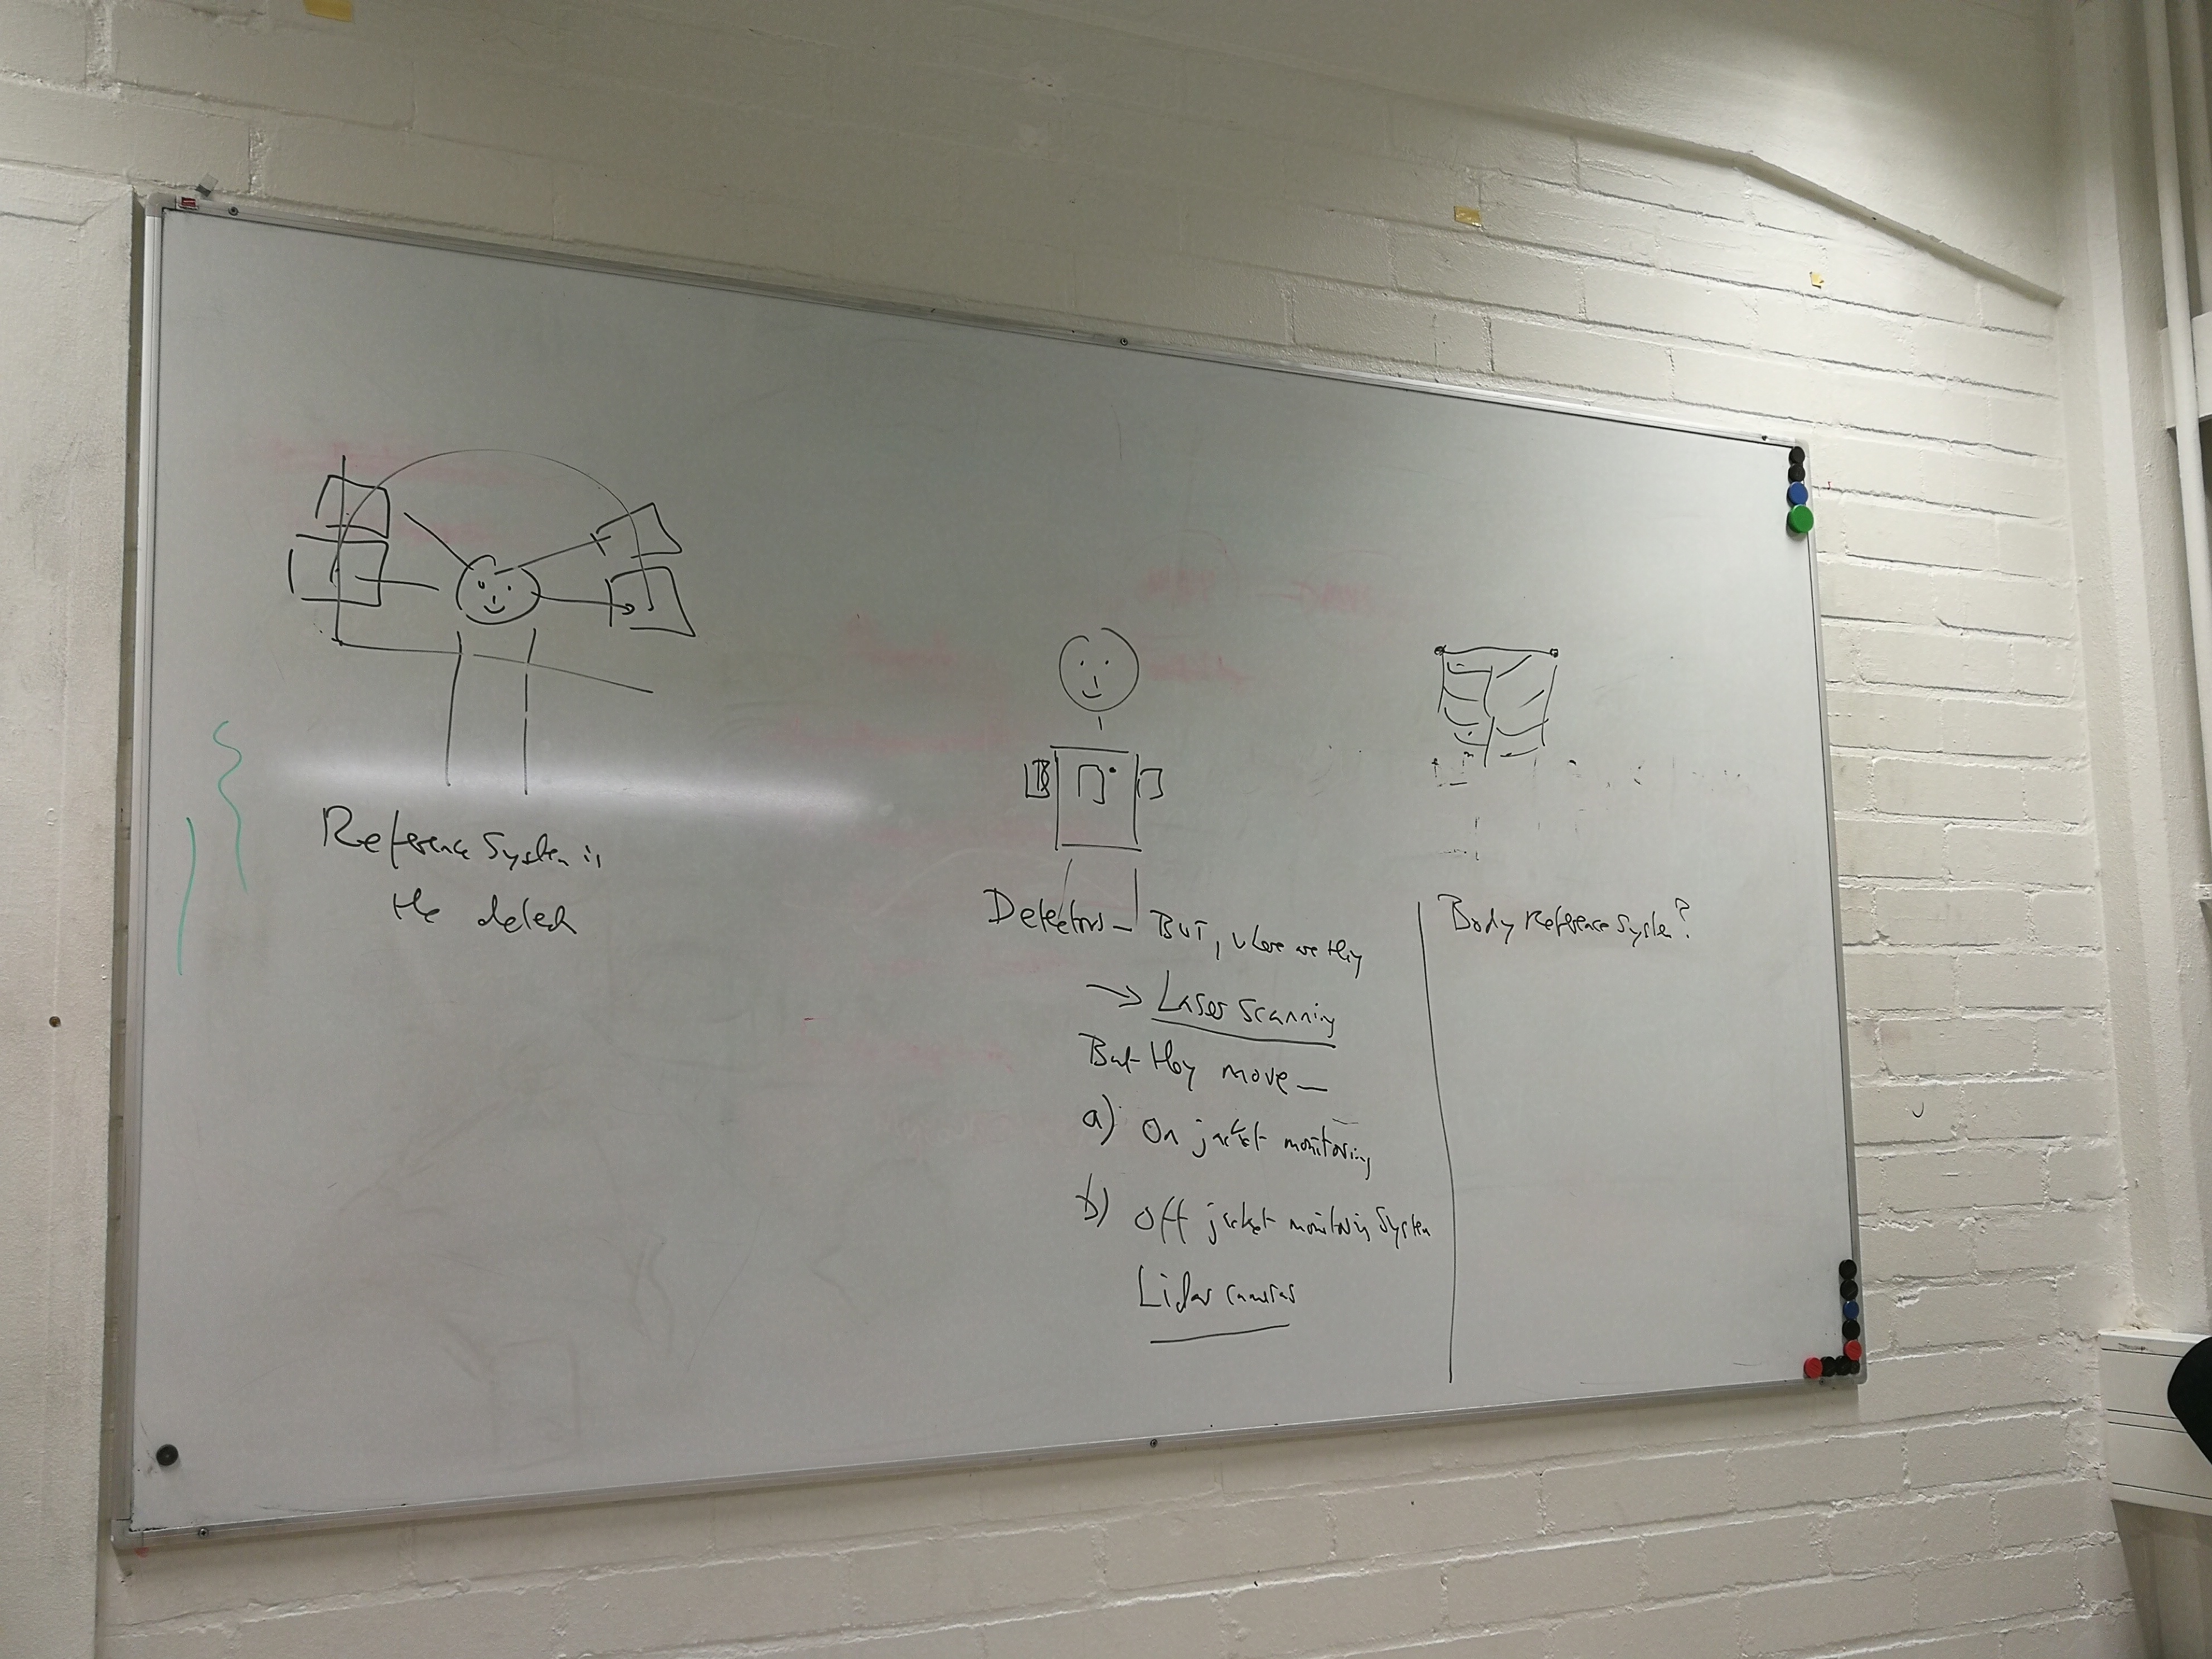 Reference System is
the detech
Detectors - BUT, where are they
→ Laser scanning
But they move -
a) On jacket monitoring
b) Off jacket monitoring System
Lidar cameras
Body Reference System?